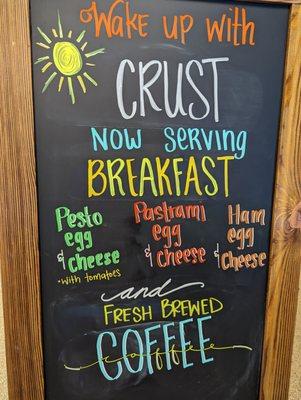 Wake up with
CRUST
NOW SERVING
BREAKFAST
Pesto egg & cheese
*With tomatoes
Pastrami egg & cheese
Ham egg & cheese
and
FRESH BREWED
COFFEE
coffee